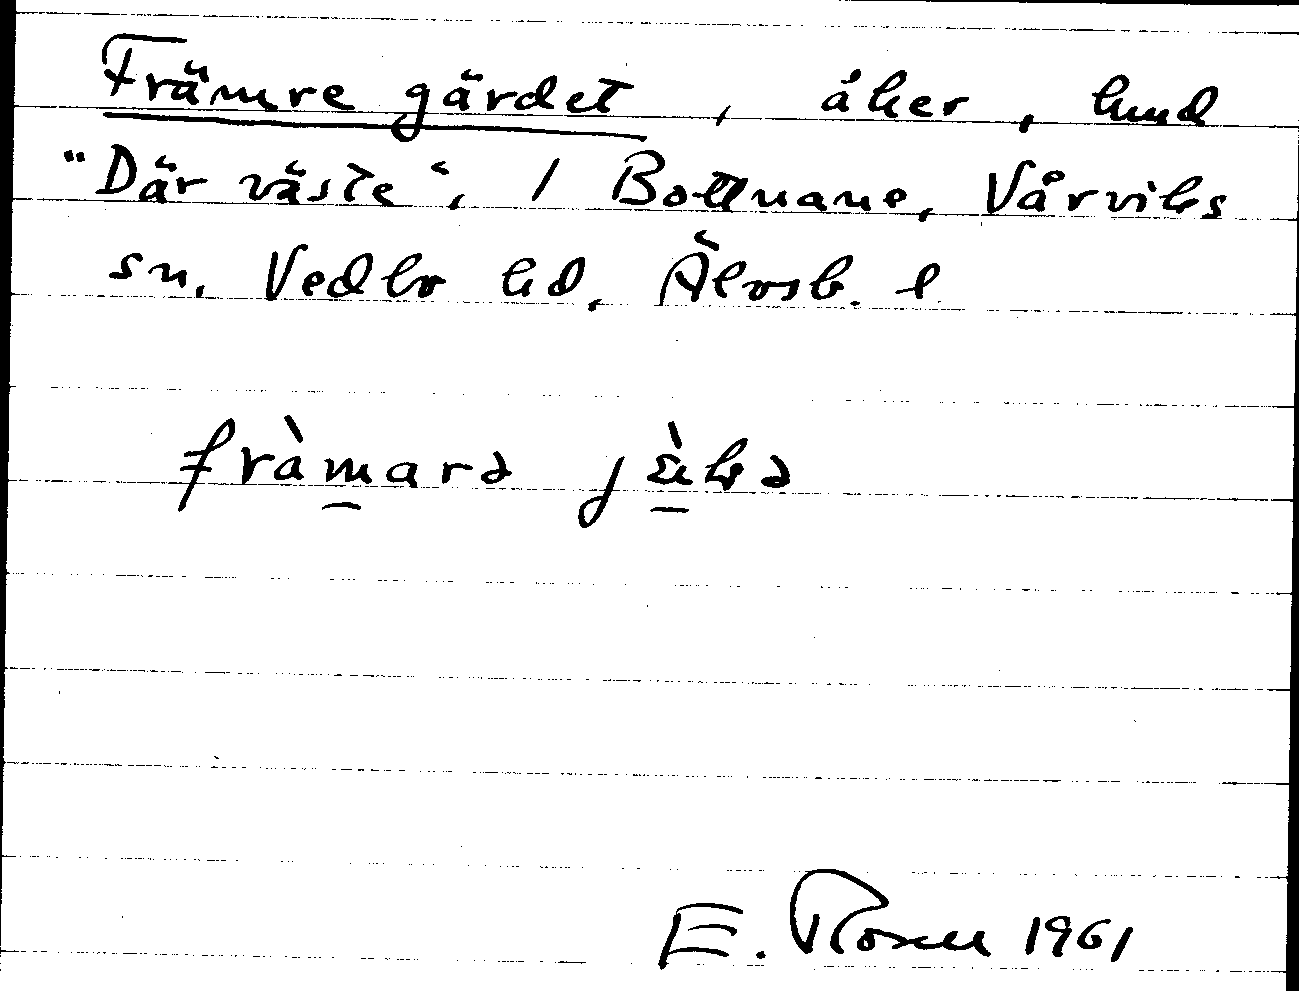 Främre gärdet, åker, hmd
"Där väste", 1 Bottnane, Vårviks
sn. Vedbo hd. Älvsb. l
fràmarə j
E. Rosell 1961